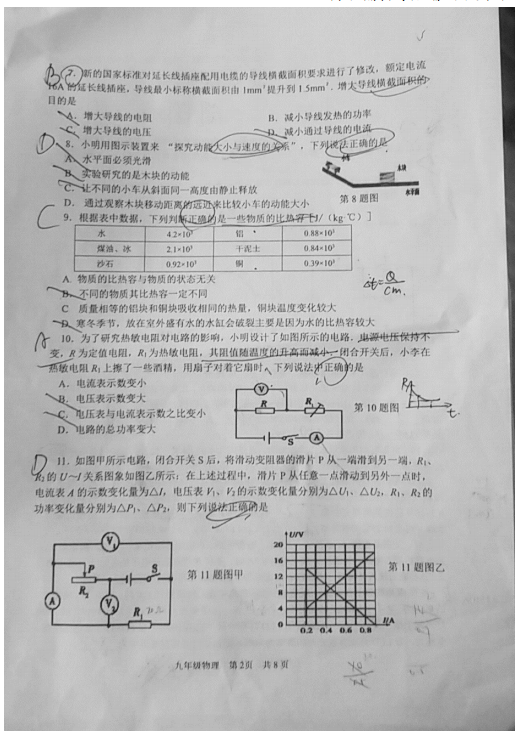 B 7. 新的国家标准对延长线插座配用电缆的导线横截面积要求进行了修改，额定电流
16A的延长线插座，导线最小标称横截面积由1mm²提升到1.5mm²．增大导线横截面积的
目的是
A．增大导线的电阻 B．减小导线发热的功率
C．增大导线的电压 D．减小通过导线的电流
D 8．小明用图示装置来“探究动能大小与速度的关系”，下列说法正确的是
A．水平面必须光滑
B．实验研究的是木块的动能
C．让不同的小车从斜面同一高度由静止释放
D．通过观察木块移动距离的远近来比较小车的动能大小
木块
水平面
第8题图
C 9．根据表中数据，下列判断正确的是一些物质的比热容[J/（kg·℃）]
水 4.2×10³ 铝 0.88×10³
煤油、冰 2.1×10³ 干泥土 0.84×10³
沙石 0.92×10³ 铜 0.39×10³
A. 物质的比热容与物质的状态无关
B．不同的物质其比热容一定不同
C 质量相等的铝块和铜块吸收相同的热量，铜块温度变化较大
D．寒冬季节，放在室外盛有水的水缸会破裂主要是因为水的比热容较大
Δt=Q/cm
A 10．为了研究热敏电阻对电路的影响，小明设计了如图所示的电路，电源电压保持不
变，R为定值电阻，R₁为热敏电阻，其阻值随温度的升高而减小．闭合开关后，小李在
热敏电阻R₁上擦了一些酒精，用扇子对着它扇时，下列说法中正确的是
A．电流表示数变小
B．电压表示数变大
C．电压表与电流表示数之比变小
D．电路的总功率变大
V
R R₁
S A
第10题图
R
t
D 11．如图甲所示电路，闭合开关S后，将滑动变阻器的滑片P从一端滑到另一端，R₁、
R₂的U～I关系图象如图乙所示；在上述过程中，滑片P从任意一点滑动到另外一点时，
电流表A的示数变化量为△I，电压表V₁、V₂的示数变化量分别为△U₁、△U₂，R₁、R₂的
功率变化量分别为△P₁、△P₂，则下列说法正确的是
V₁
P S
R₂
A V₂ R₁
第11题图甲
U/V
20
16
12
8
4
0
0.2 0.4 0.6 0.8 I/A
第11题图乙
九年级物理 第2页 共8页